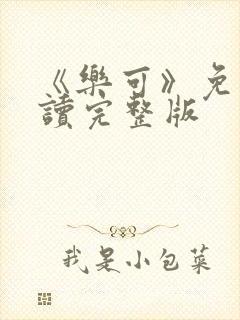 《樂可》免
讀完整版
我是小包菜